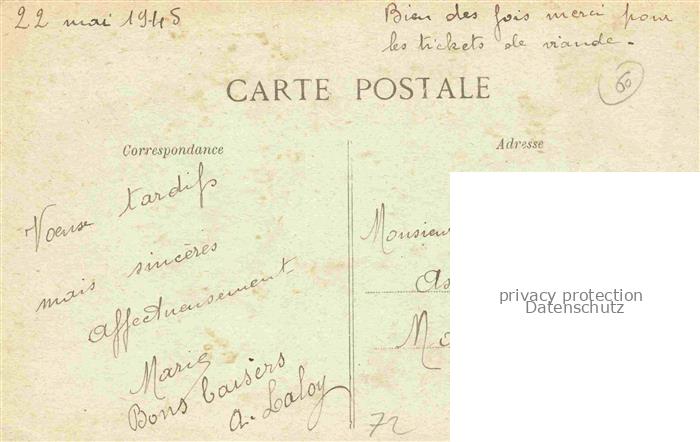 22 mai 1945
Bien des fois merci pour
les tickets de viande.
60
CARTE POSTALE
Correspondance
Adresse
Voeux tardifs
mais sincères
Affectueusement
Marie
Bons baisers
A. Laloy
Monsieur
As
Mo
72
privacy protection
Datenschutz